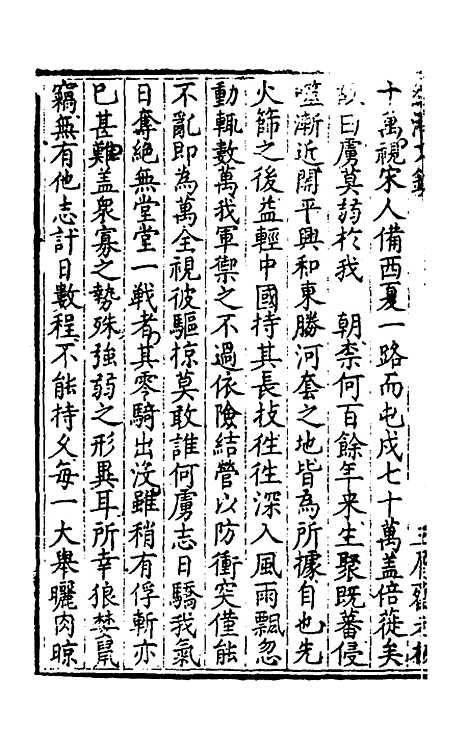 十萬視宋人備西夏一路而屯戍七十萬盖倍蓰矣
故曰虜莫弱於我　朝柰何百餘年來生聚既蕃侵
噬漸近開平興和東勝河套之地皆為所據自也先
火篩之後益輕中國恃其長技徃徃深入風雨飄忽
動輒數萬我軍禦之不過依險結營以防衝突僅能
不亂即為萬全視彼驅掠莫敢誰何虜志日驕我氣
日奪絕無堂堂一戰者其零騎出沒雖稍有俘斬亦
已甚難盖衆寡之勢殊強弱之形異耳所幸狼貪鼠
竊無有他志計日數程不能持久每一大舉曬肉晾